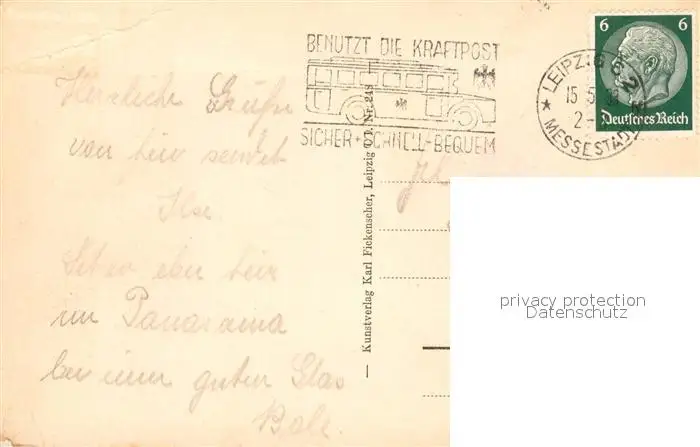 BENUTZT DIE KRAFTPOST
SICHER-SCHNELL-BEQUEM
LEIPZIG C 2
15.5.
MESSESTADT
6 6
Deutsches Reich
Herzliche Grüße
von hier sendet
Ilse.
hier
im Panorama
bei einem guten Glas
Kunstverlag Karl Fickenscher, Leipzig O 5. Nr. 248
privacy protection
Datenschutz